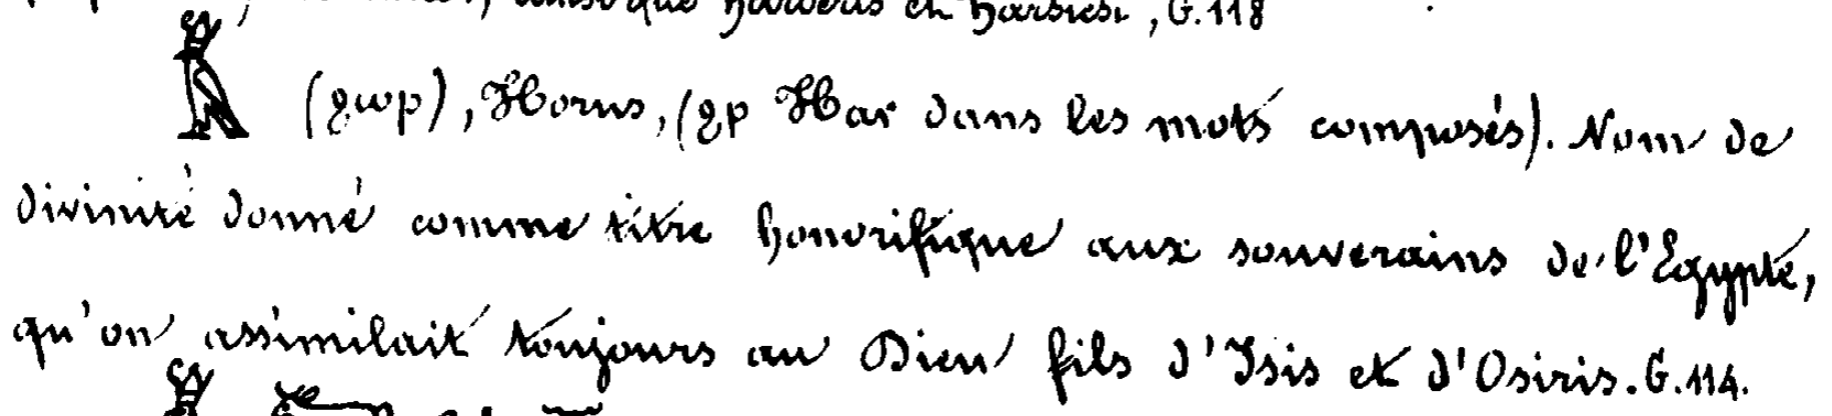 ainsi que Haroëris et Harsiési, G. 118
𓅃 (ϩωρ), Horus, (ϩρ Har dans les mots composés). Nom de
divinité donné comme titre honorifique aux souverains de l'Egypte,
qu'on assimilait toujours au Dieu fils d'Isis et d'Osiris. G. 114.